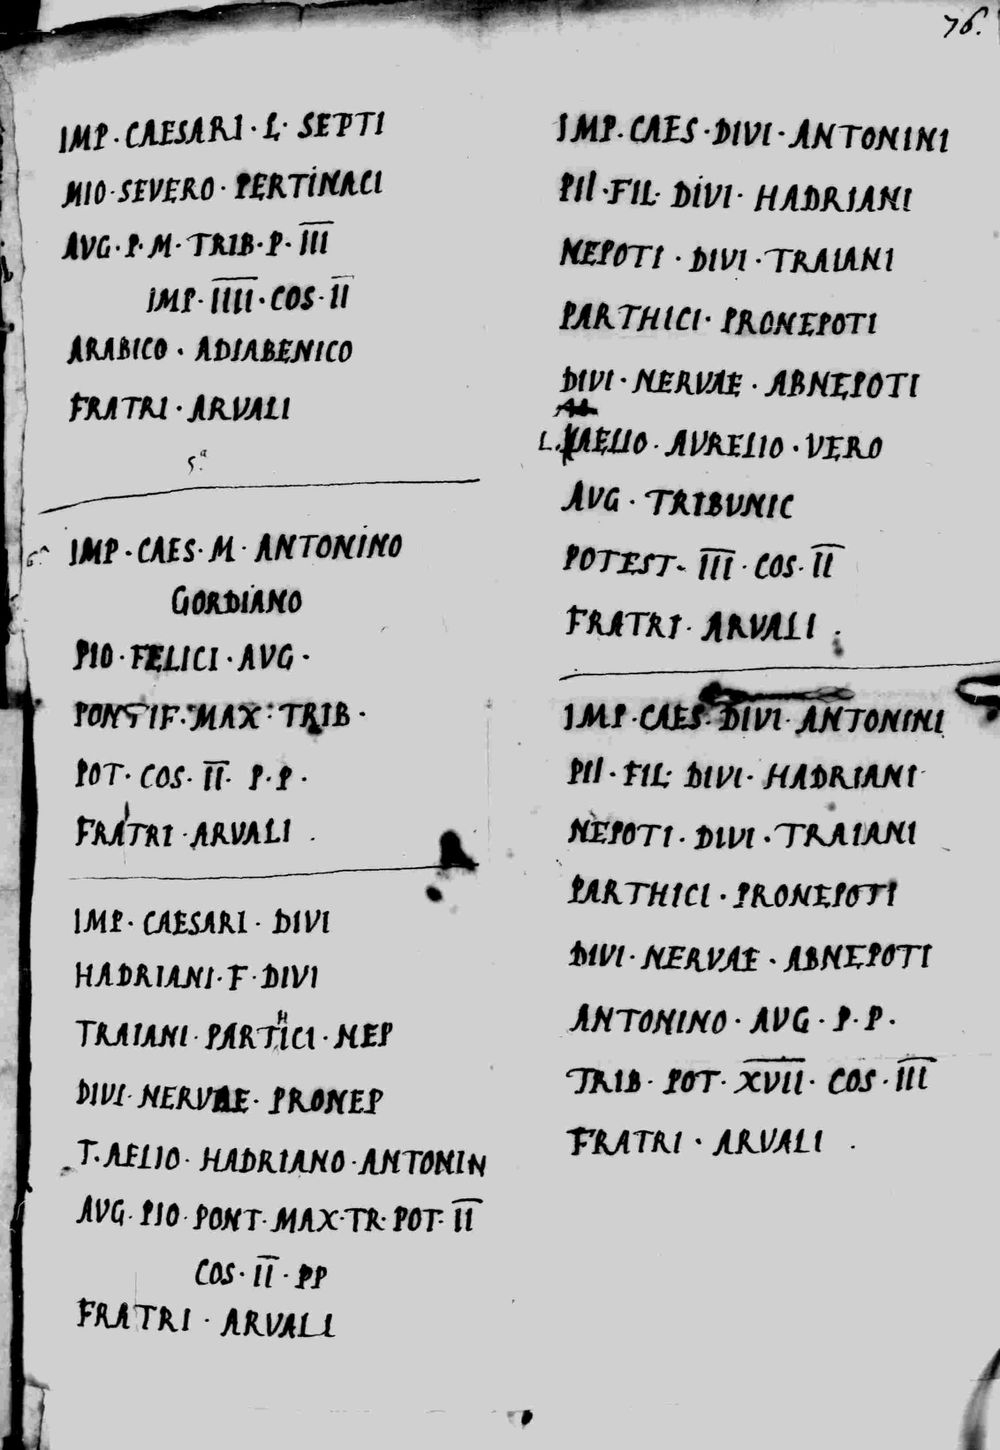 76.
IMP·CAESARI·L·SEPTI
MIO·SEVERO·PERTINACI
AVG·P·M·TRIB·P·I̅I̅I̅
IMP·I̅I̅I̅I̅·COS·I̅I̅
ARABICO·ADIABENICO
FRATRI·ARVALI
5.ª
6ª IMP·CAES·M·ANTONINO
GORDIANO
PIO·FELICI·AVG·
PONTIF·MAX·TRIB·
POT·COS·I̅I̅·P·P·
FRATRI·ARVALI.
IMP·CAESARI·DIVI
HADRIANI·F·DIVI
TRAIANI·PARTHICI·NEP
DIVI·NERVAE·PRONEP
T·AELIO·HADRIANO·ANTONIN
AVG·PIO·PONT·MAX·TR·POT·I̅I̅
COS·I̅I̅·PP
FRATRI·ARVALI
IMP·CAES·DIVI·ANTONINI
PII·FIL·DIVI·HADRIANI
NEPOTI·DIVI·TRAIANI
PARTHICI·PRONEPOTI
DIVI·NERVAE·ABNEPOTI
L.AELIO·AVRELIO·VERO
AVG·TRIBUNIC
POTEST·I̅I̅I̅·COS·I̅I̅
FRATRI·ARVALI.
IMP·CAES·DIVI·ANTONINI
PII·FIL·DIVI·HADRIANI
NEPOTI·DIVI·TRAIANI
PARTHICI·PRONEPOTI
DIVI·NERVAE·ABNEPOTI
ANTONINO·AVG·P·P·
TRIB·POT·X̅V̅I̅I̅·COS·I̅I̅I̅
FRATRI·ARVALI.